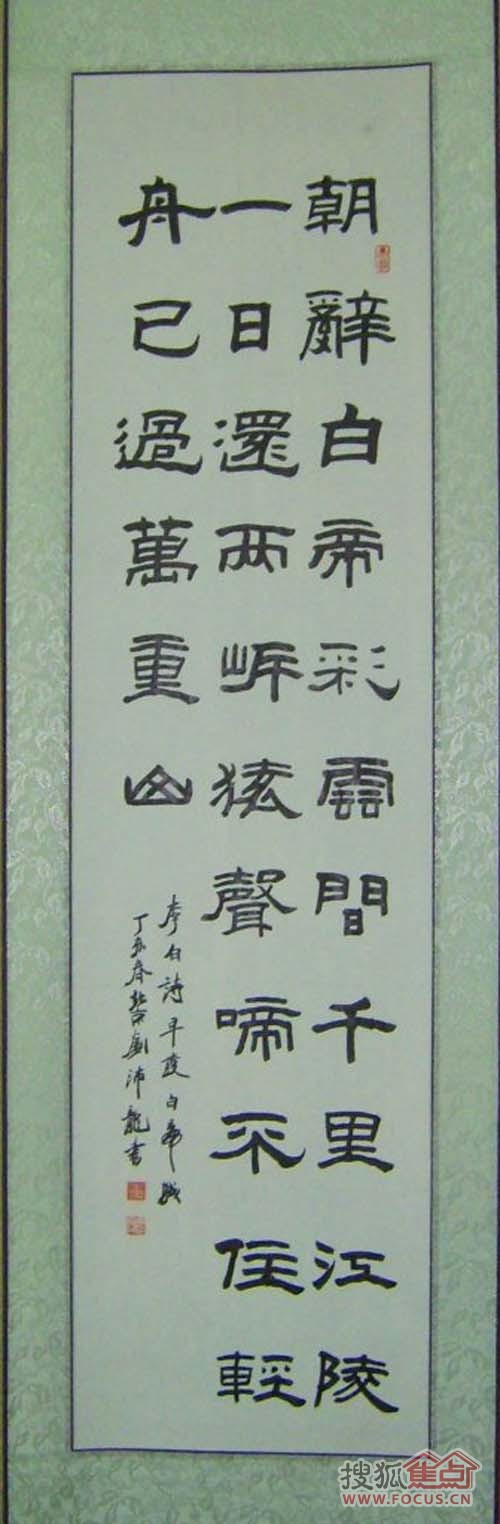 朝辭白帝彩雲間千里江陵
一日還两岍猿聲啼不住輕
舟已過萬重山
李白詩早發白帝城
丁亥春劉沛龍書
搜狐焦点
WWW.FOCUS.CN